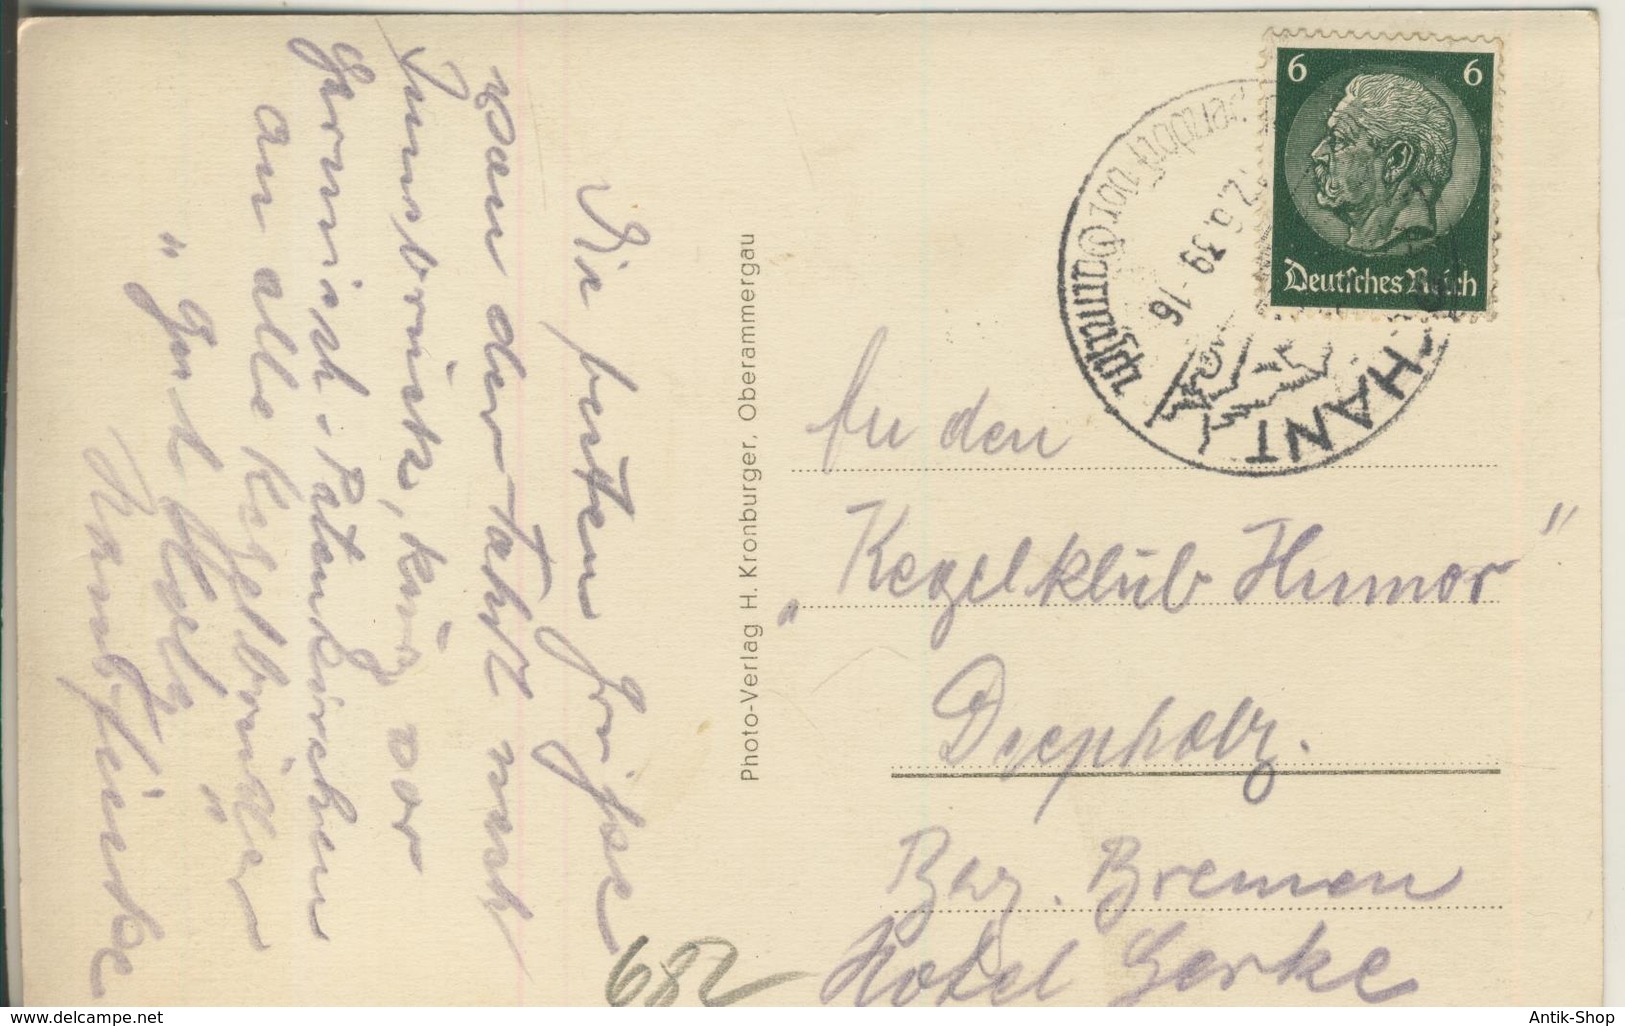 Die besten Grüsse
von der Fahrt nach
Innsbruck, kurz vor
Garmisch-Patenkirchen
an alle Kegelbrüder
" Gut Holz "
6 6
Deutsches Reich
2.6.39 -16
Photo-Verlag H. Kronburger, Oberammergau
An den
„Kegelklub Humor"
Diepholz.
Bez. Bremen
Hotel Gerke
682
www.delcampe.net
Antik-Shop